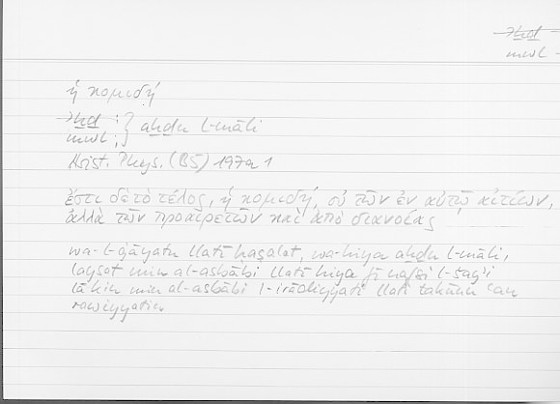 ʾḫḏ
mwl
ἡ κομιδή
ʾḫḏ ;
mwl ; } aḫḏu l-māli
Arist. Phys. (B5) 197a1
ἔστι δὲ τὸ τέλος, ἡ κομιδή, οὐ τῶν ἐν αὐτῷ αἰτίων,
ἀλλὰ τῶν προαιρετῶν καὶ ἀπὸ διανοίας
wa-l-ġāyatu llatī ḥaṣalat, wa-hiya aḫḏu l-māli,
laysat min al-asbābi llatī hiya fī nafsi l-šayʾi
lākin min al-asbābi l-irādiyyati llatī takūnu ʿan
rawiyyatin